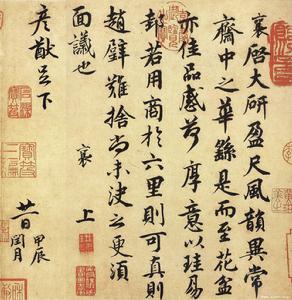 襄啓大研盈尺風韻異常
齋中之華繇是而至花盆
亦佳品感荷厚意以珪易
邽若用商於六里則可真則
趙璧難捨尚未決之更須
面議也 襄上
彥猷足下
廿一日 甲辰閏月